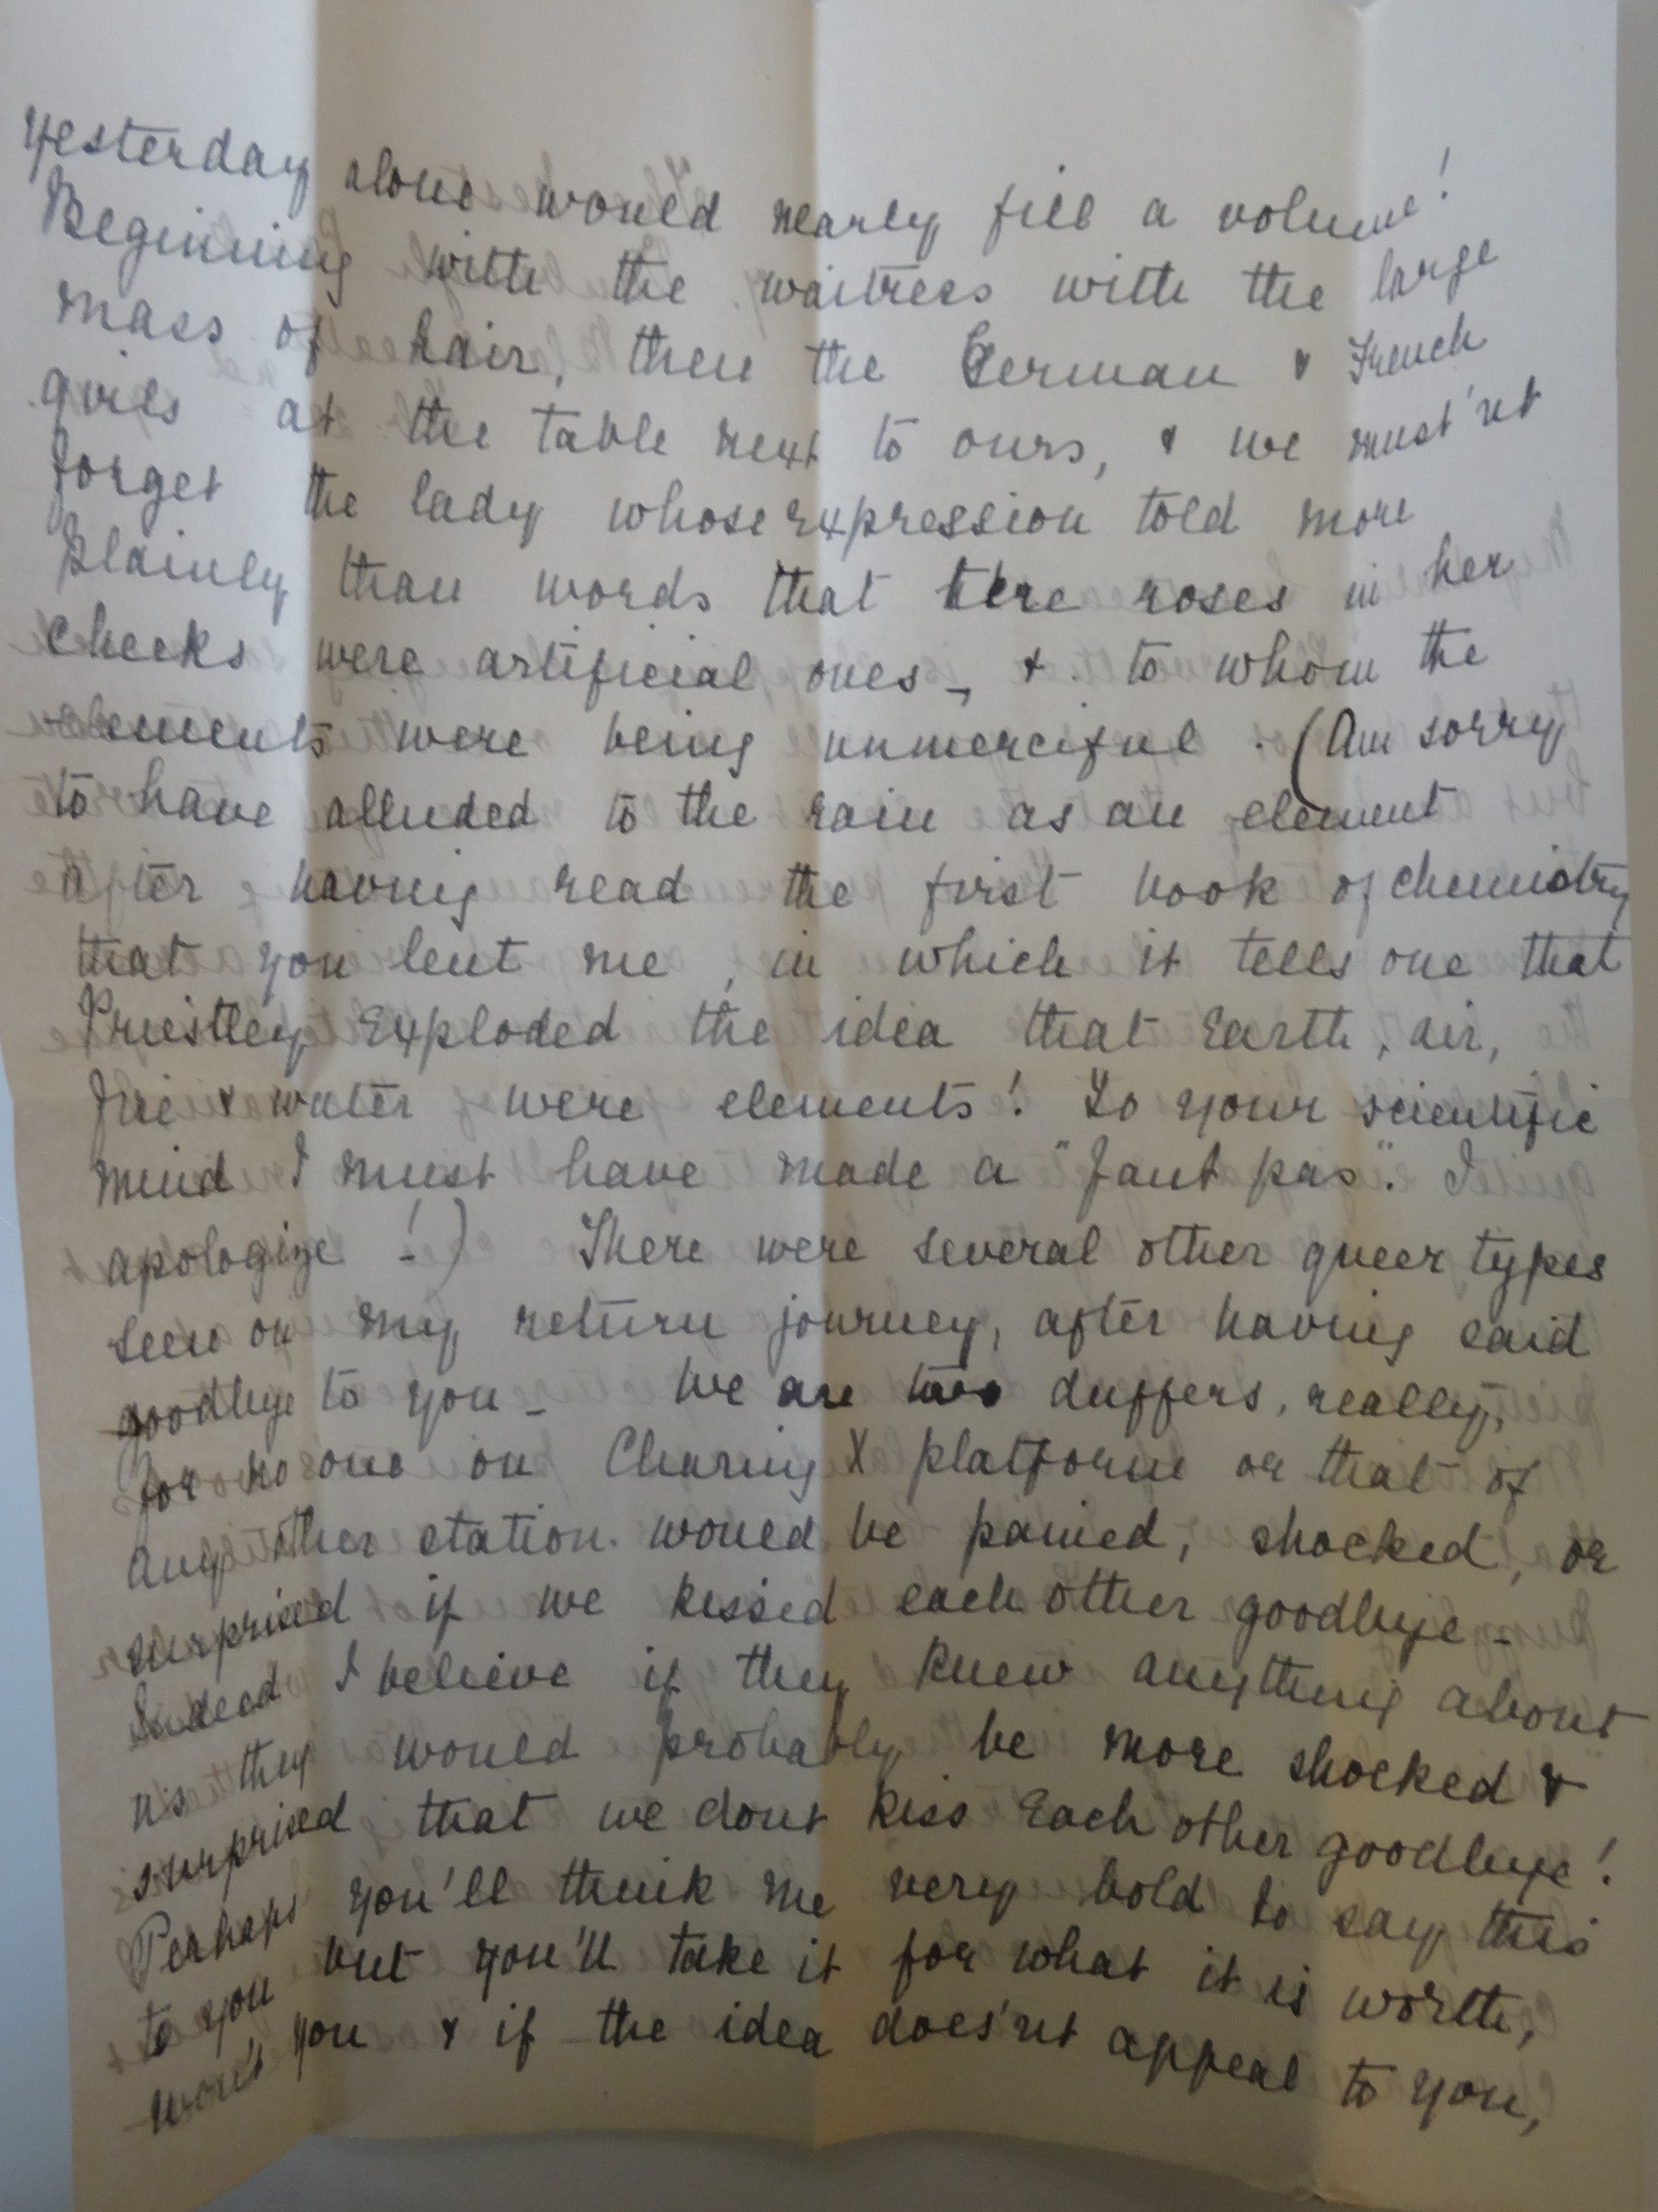 Yesterday alone would nearly fill a volume!
Beginning with the waitress with the large
mass of hair, then the German & French
girls at the table next to ours, & we must'nt
forget the lady whose expression told more
plainly than words that the roses in her
cheeks were artificial ones, & to whom the
elements were being unmerciful. (Am sorry
to have alluded to the rain as an element
after having read the first book of chemistry
that you lent me, in which it tells one that
Priestley exploded the idea that Earth, air,
fire & water were elements! To your scientific
mind I must have made a "faut pas". I
apologize!) There were several other queer types
seen on my return journey, after having said
goodbye to you - We are two duffers, really,
for no one on Charing X platform or that of
any other station would be pained, shocked, or
surprised if we kissed each other goodbye -
Indeed I believe if they knew anything about
us they would probably be more shocked &
surprised that we dont kiss each other goodbye!
Perhaps you'll think me very bold to say this
to you but you'll take it for what it is worth,
won't you & if the idea does'nt appeal to you,